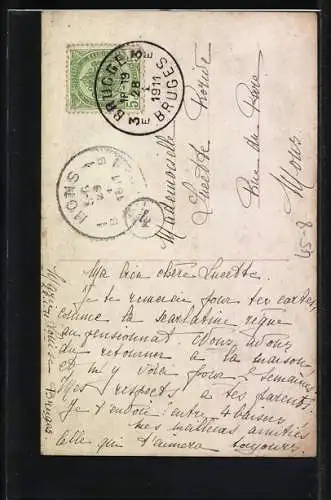 BRUGGE 3 E
18-19
28
1911
3 E BRUGES
MONS
4
Mademoiselle
Lucette
Rue de
Mons
45-8
Ma bien chère Lucette.
Je te remercie pour tes cartes,
comme la scarlatine règne
au pensionnat. Nous avons
du retourner à la maison
et m'y voilà pour semaines
Mes respects à tes parents.
Je t'envoie entre 4 baisers
mes amitiés
Celle qui t'aimera toujours.
Bruges